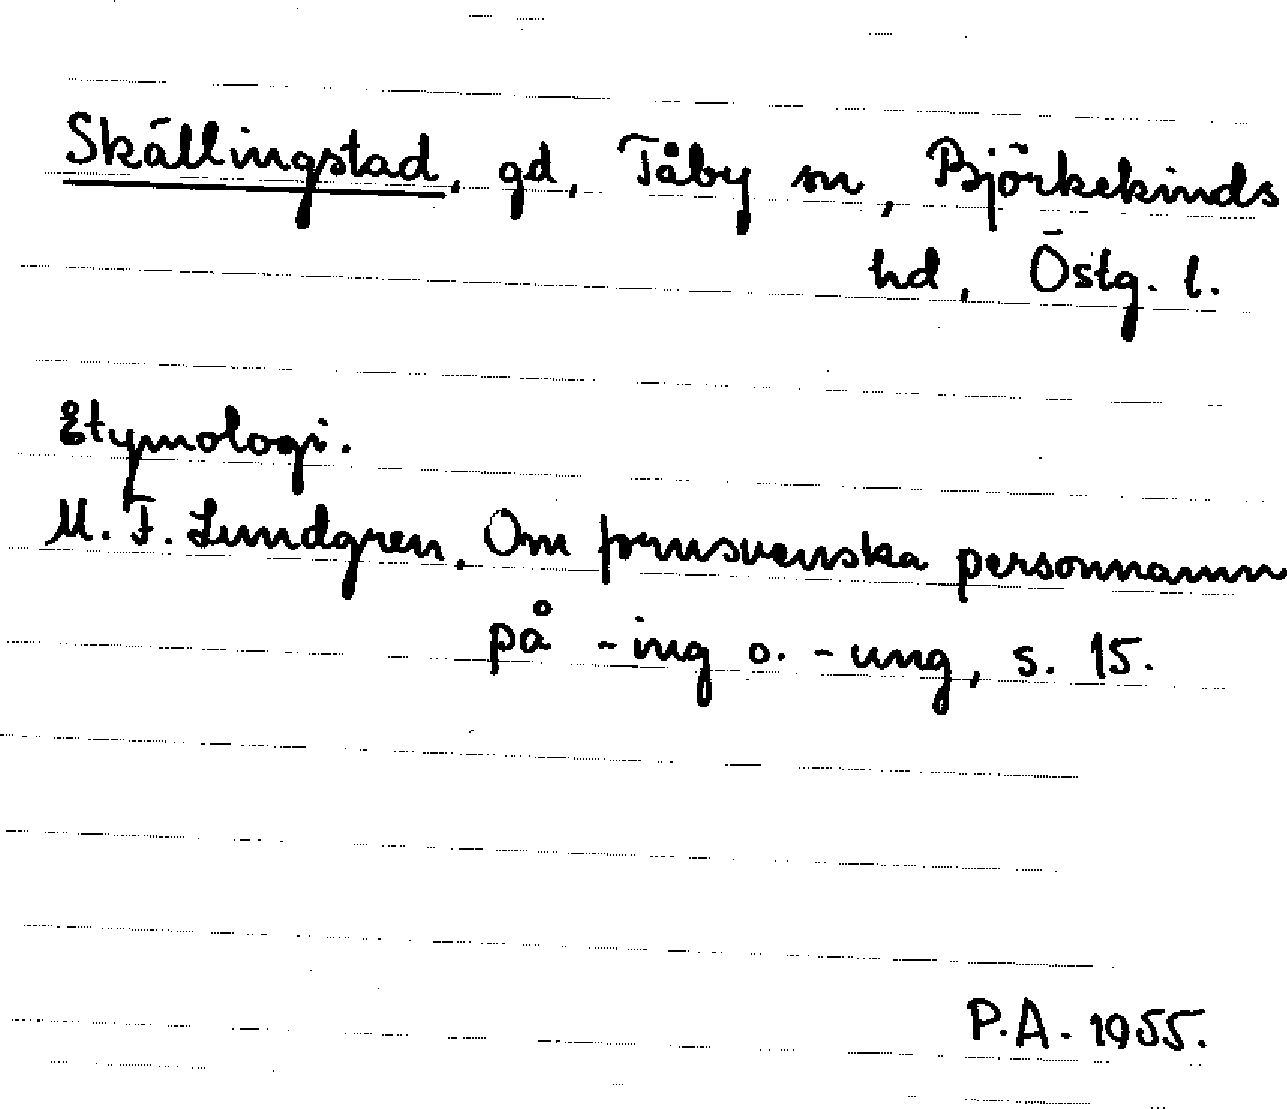 Skällingstad, gd, Tåby sn, Björkekinds
hd, Östg. l.
Etymologi.
M. F. Lundgren, Om fornsvenska personnamn
på -ing o. -ung, s. 15.
P.A. 1955.